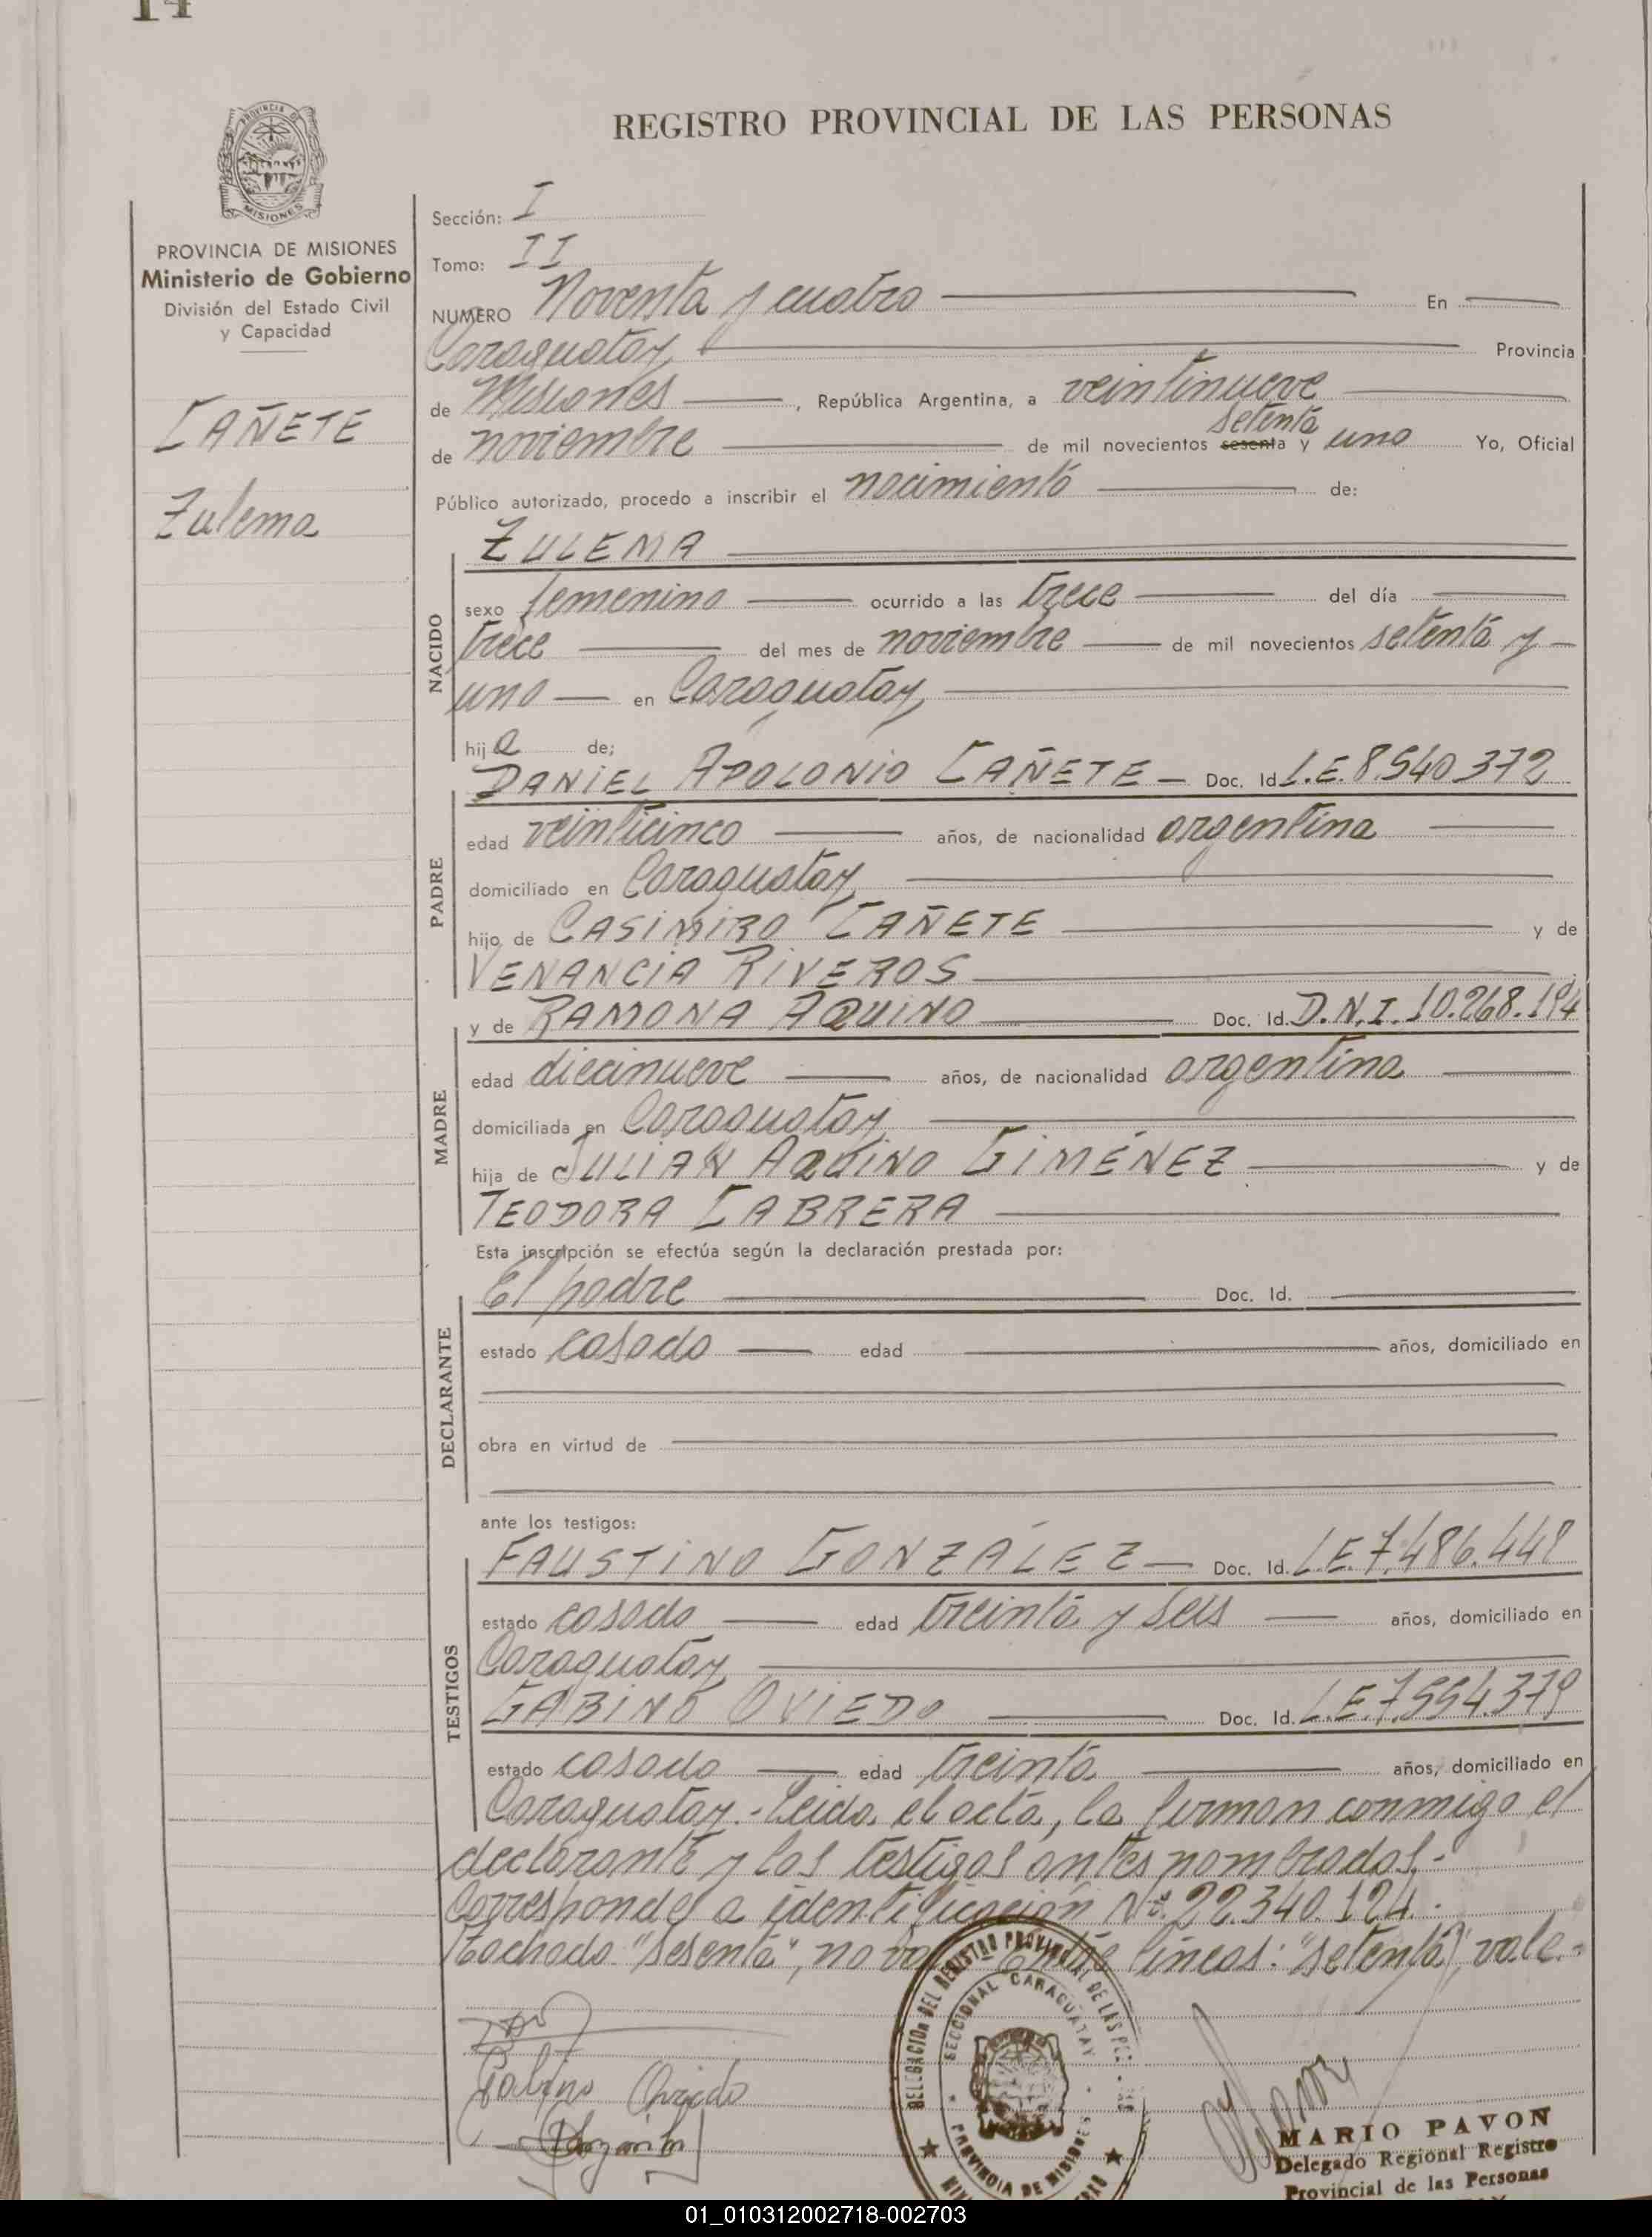 14
REGISTRO PROVINCIAL DE LAS PERSONAS
PROVINCIA DE MISIONES
Ministerio de Gobierno
División del Estado Civil
y Capacidad
CAÑETE
Zulema
Sección: I
Tomo: II
NUMERO Noventa y cuatro En
Caraguatay, Provincia
de Misiones, República Argentina, a veintinueve
setenta
de noviembre de mil novecientos sesenta y uno Yo, Oficial
Público autorizado, procedo a inscribir el nacimiento de:
ZULEMA
NACIDO
sexo femenino ocurrido a las trece del día
trece del mes de noviembre de mil novecientos setenta y
uno en Caraguatay,
hija de;
DANIEL APOLONIO CAÑETE - Doc. Id L.E. 8.540.372
PADRE
edad veinticinco años, de nacionalidad argentina
domiciliado en Caraguatay,
hijo de CASIMIRO CAÑETE y de
VENANCIA RIVEROS
y de RAMONA AQUINO Doc. Id. D.N.I. 10.268.194
MADRE
edad diecinueve años, de nacionalidad argentina
domiciliada en Caraguatay,
hija de JULIAN AQUINO GIMÉNEZ y de
TEODORA CABRERA
Esta inscripción se efectúa según la declaración prestada por:
El padre Doc. Id.
DECLARANTE
estado casado edad años, domiciliado en
obra en virtud de
ante los testigos:
FAUSTINO GONZÁLEZ - Doc. Id. L.E. 7.486.448
TESTIGOS
estado casado edad treinta y seis años, domiciliado en
Caraguatay,
GABINO OVIEDO Doc. Id. L.E. 7.554.379
estado casado edad treinta años, domiciliado en
Caraguatay.- Leida el acta, la firman conmigo el
declarante y los testigos antes nombrados.-
Corresponde a identificación Nº 22.340.124.-
Tachado "sesenta", no Entre líneas: "setenta", vale.-
Gabino Oviedo
DELEGACION DEL REGISTRO PROVINCIAL DE LAS
SECCIONAL CARAGUATAY
PROVINCIA DE MISIONES
MARIO PAVON
Delegado Regional Registro
Provincial de las Personas
01_010312002718-002703